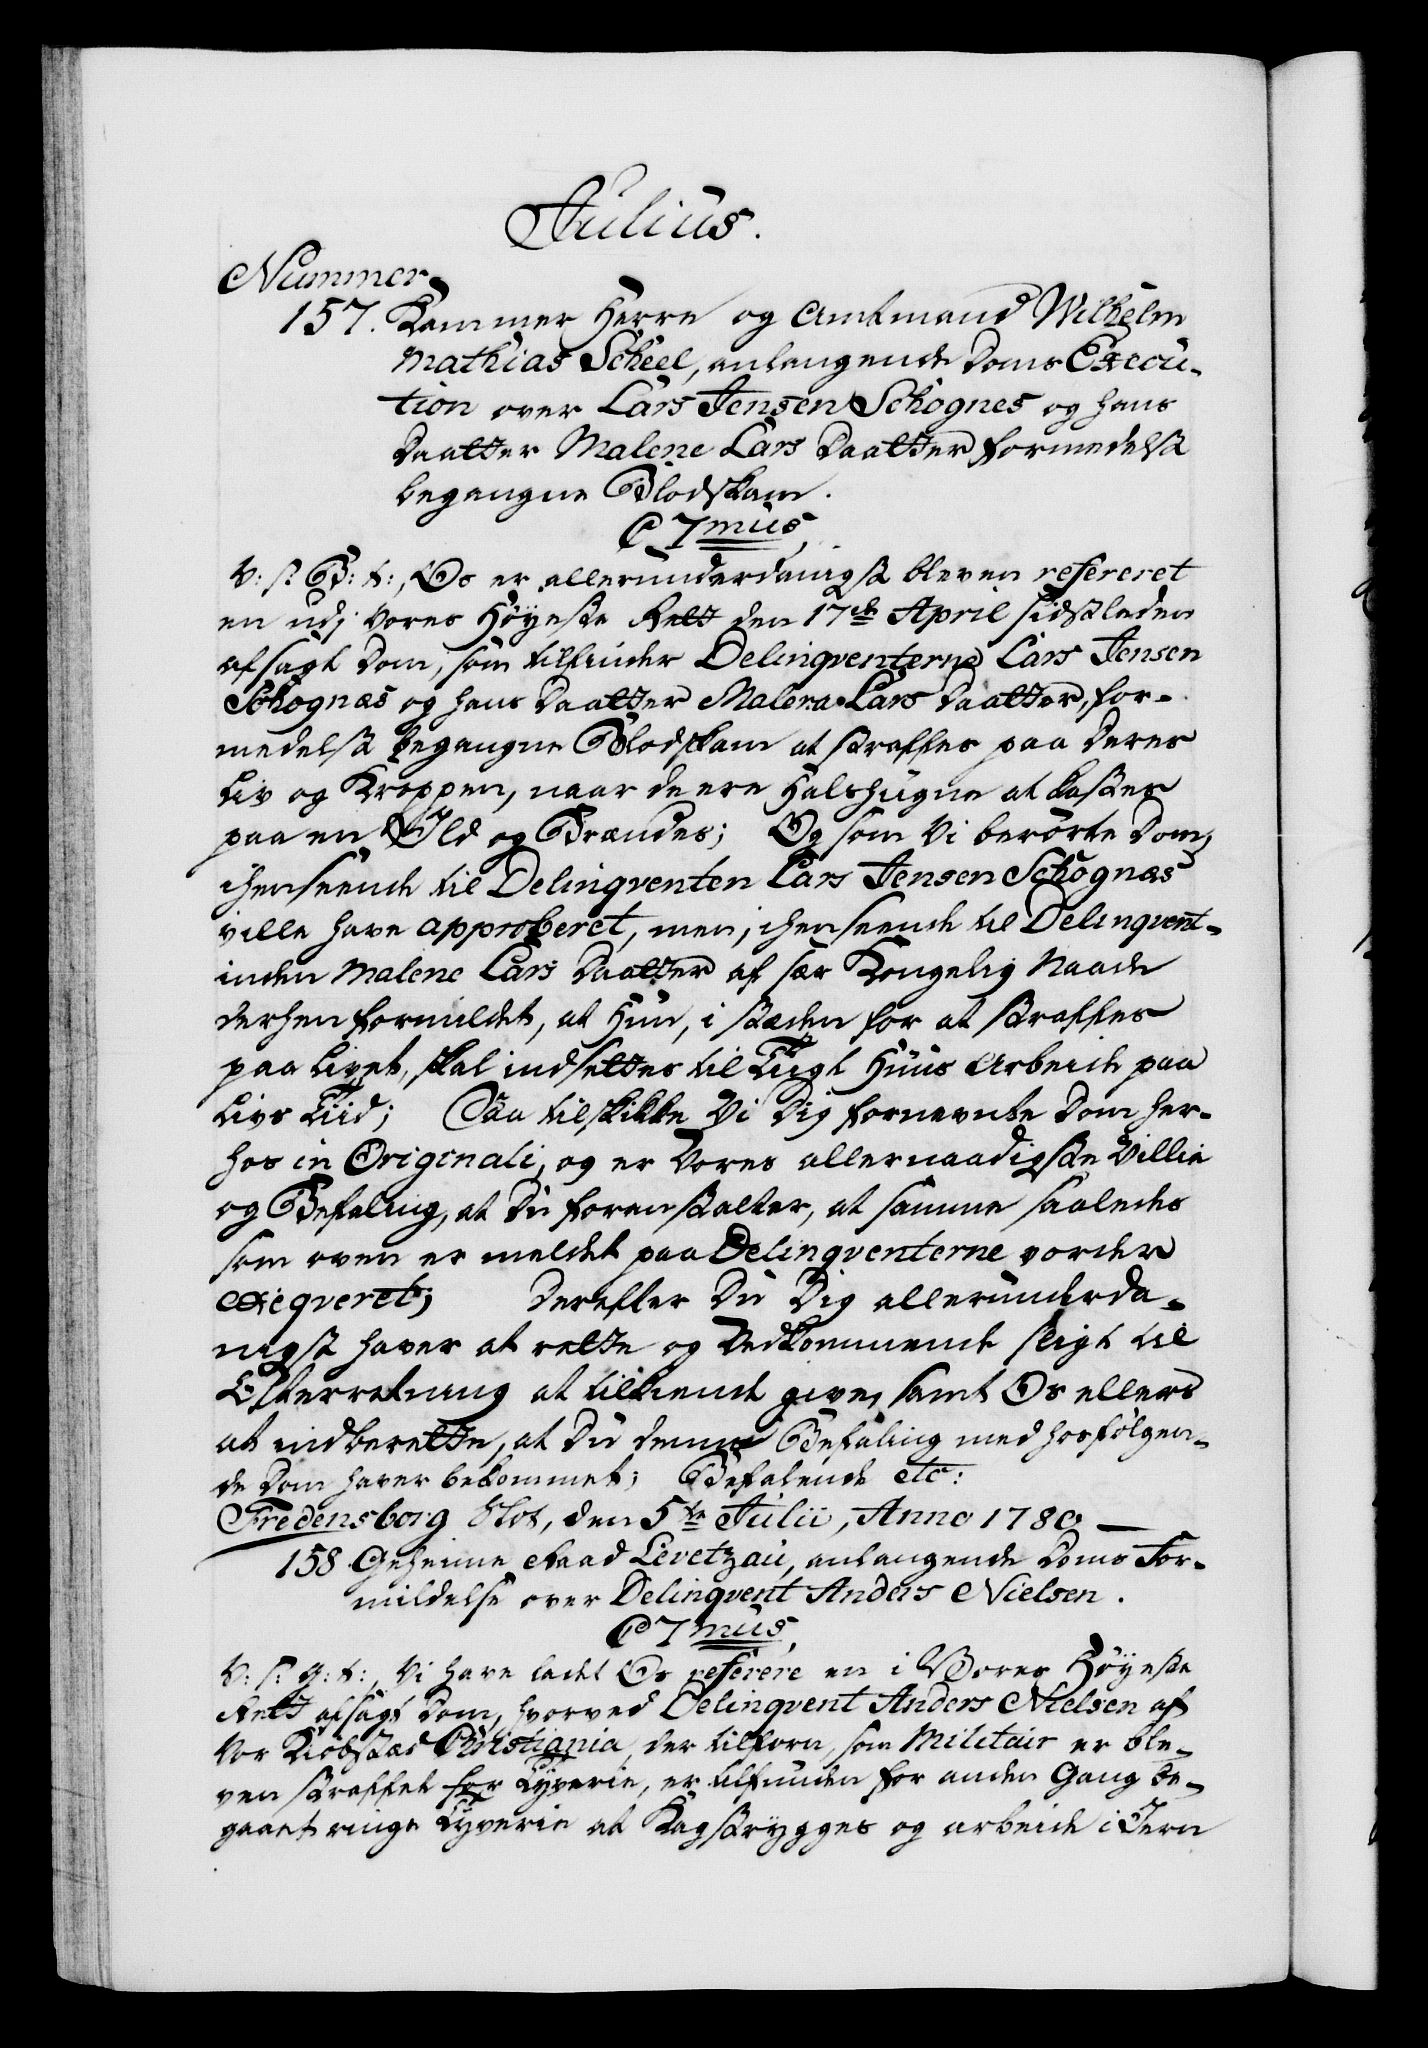 Julius.
Nummer
157. Kammer Herre og Amtmand Wilhelm
Mathias Scheel, anlangende Doms Execu-
tion over Lars Jensen Schognes og hans
Daatter Malene Lars Daatter formedelst
begangne Blodskam.
C 7mus,
V: s: G: t:, Os er allerunderdanigst bleven refereret
en udj Vores Høyeste Rett den 17de April sidstleden
afsagt Dom, som tilfinder Delinqventerne Lars Jensen
Schognæs og hans Daatter Malena Lars Daatter, for-
medelst begangne Blodskam at straffes paa Deres
Liv og Kroppen, naar de ere Halshugne at kastes
paa en Ild og Brændes; Og som Vi berørte Dom,
i henseende til Delinqventen Lars Jensen Schognæs
ville have approberet, men, i henseende til Delinqvent-
inden Malene Lars Daatter af sær Kongelig Naade
derhen formildet, at Hun, i stæden for at straffes
paa Livet, skal indsettes til Tugt Huus Arbeide paa
Livs Tiid; Saa tilskikke Vi Dig fornevnte Dom her-
hos in Originali, og er Vores allernaadigste Villie
og Befaling, at Du foranstalter, at samme saaledes
som oven er meldet paa Delinqventerne vorder
exeqveret; Derefter Du Dig allerunderda-
nigst haver at rette og Vedkommende sligt til
Efterretning at tilkiende give, samt Os ellers
at indberette, at Du denne Befaling med hosfølgen-
de Dom haver bekommet; Befalende etc:
Fredensborg Slot, den 5te Julii, Anno 1780
158 Geheime Raad Levetzau, anlangende Doms For-
mildelse over Delinqvent Anders Nielsen.
C 7mus,
V: s: g: t:, Vi have ladet Os referere en i Vores Høyeste
Rett afsagt Dom, hvorved Delinqvent Anders Nielsen af
Vor Kiøbstæd Christiania, der tilforn som Militair er ble-
ven straffet for Tyverie, er tilfunden for anden Gang be-
gaaet ringe Tyverie at Kagstrygges og arbeide i Jern